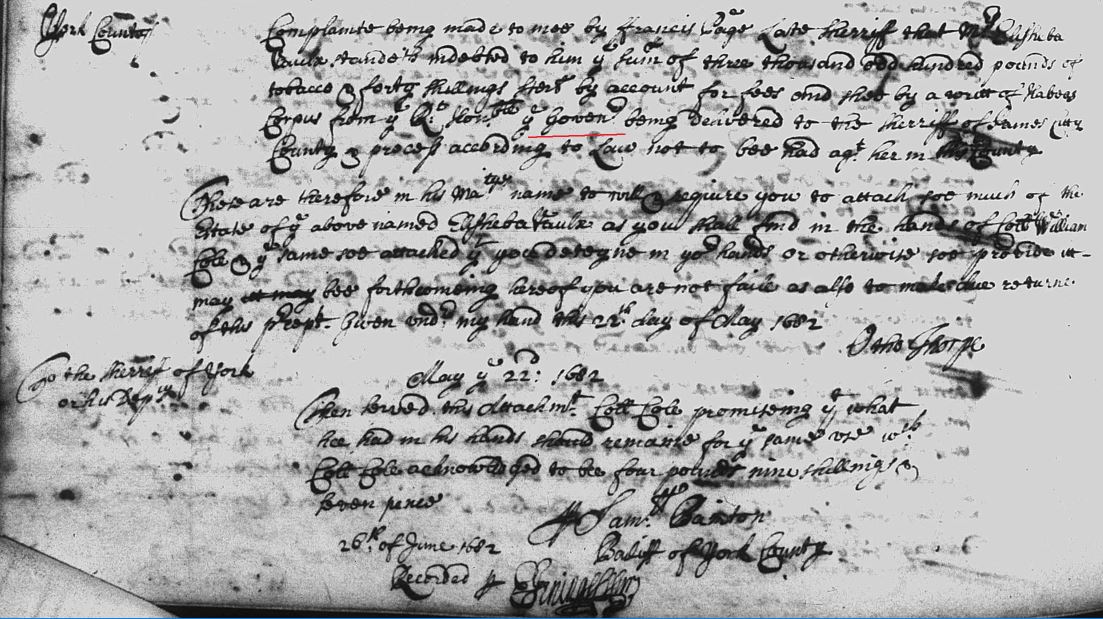 York County
Complainte being made to mee by Francis Page Late Sherriff that Mrs Elisheba
Vaulx standeth indebted to him ye sum of three thousand odd hundred pounds of
tobacco & forty shillings sterl by account for fees and shee by a writt of Habeas
Corpus from ye Rt. Honble ye Govenr being delivered to the Sherriff of James Citty
County & process according to Law not to bee had agt. her in this County
These are therefore in his Matyes name to will & require you to attach soe much of the
Estate of ye above named Elisheba Vaulx as you shall find in the hands of Coll William
Cole & ye same soe attached yt you deteyne in yor hands or otherwise soe provide itt
may itt may bee forthcomeing hereof you are not faile as also to make due returne
of this precpt. Given undr my hand this 22th day of May 1682
Otho Thorpe
To the Sherref of York
or his Depty
May ye 22d: 1682
Then served this Attachmt. Coll Cole promiseing yt what
hee had in his hands should remaine for ye same use wch
Coll Cole acknowledged to bee four pounds nine shillings &
seven pence
p Saml. Baxton
26th. of June 1682
Baliff of York County
Recorded p